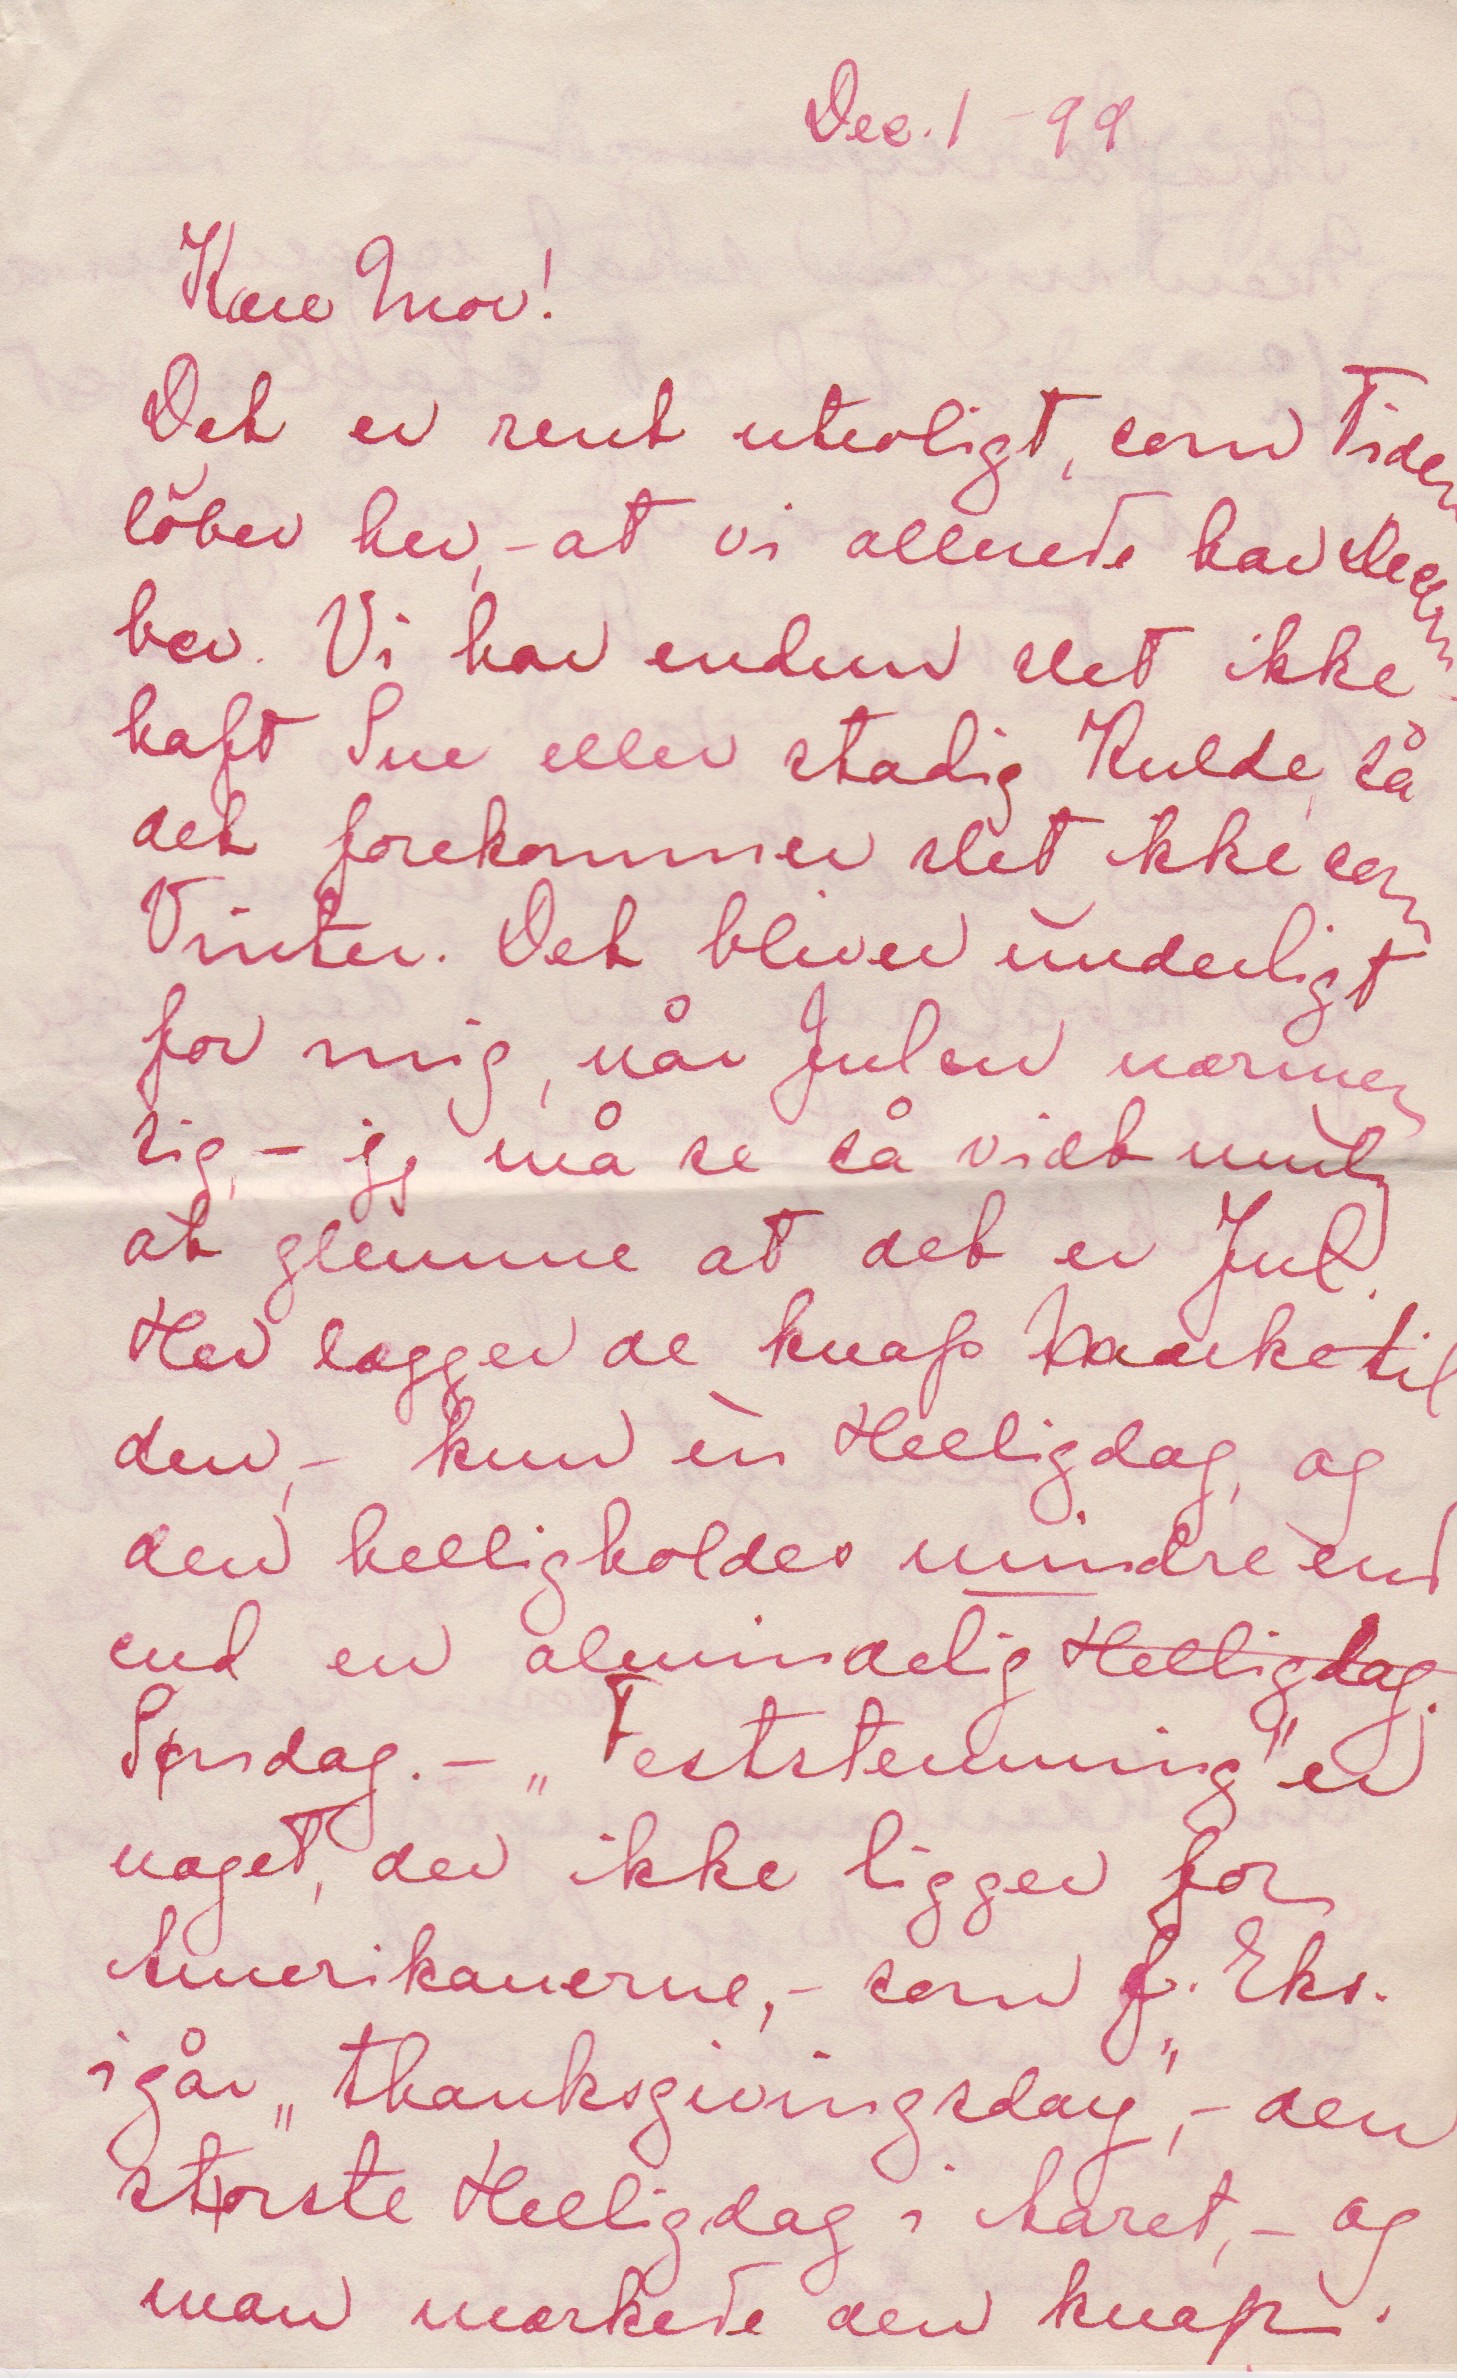 Dec. 1 - 99
Kære Mor!
Det er rent utroligt, som Tiden
löber her, - at vi allerede har Decem
ber. Vi har endnu slet ikke
haft Sne eller stadig Kulde, så
det forekommer slet ikke som
Vinter. Det bliver underligt
for mig, når Julen nærmer
sig, - jeg må se så vidt mul.
at glemme at det er Jul.
Her lægger de knap Mærke til
den, - kun èn Helligdag, og
den helligholdes mindre end
end en almindelig Helligdag.
Søndag. - „Feststemning" er
noget, der ikke ligger for
Amerikanerne, - som f. Eks.
igår „thanksgivingsday", - den
største Helligdag i Aaret, - og
man mærkede den knap.